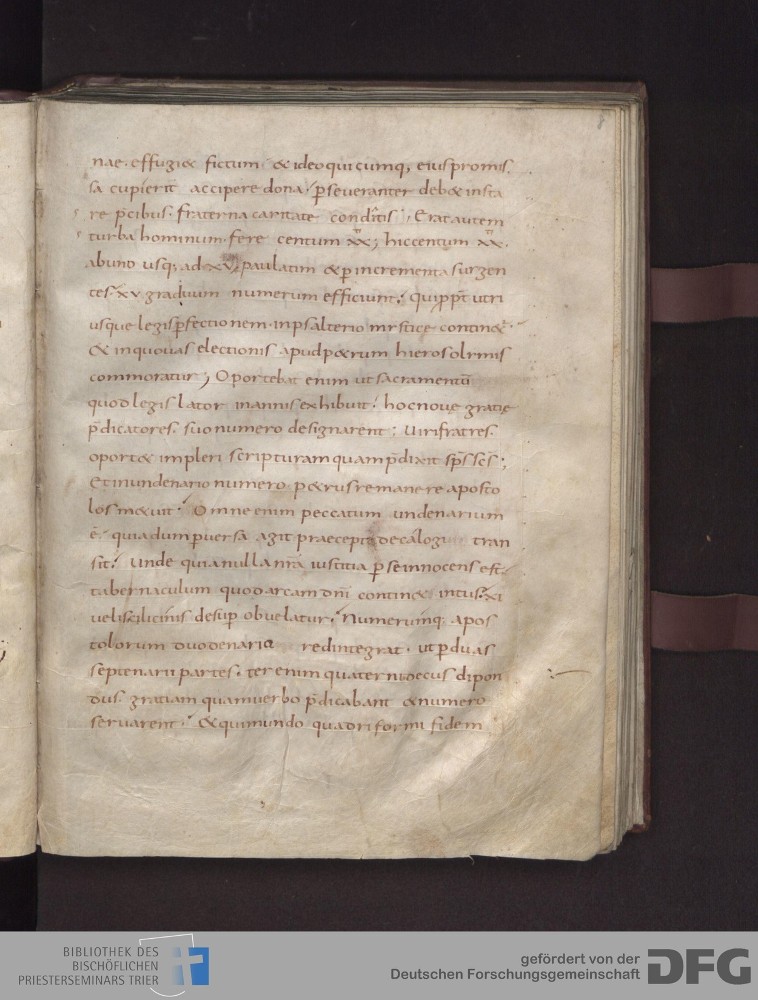 nae. effugi& fictum. & ideo quicumq; eius promis.
sa cupierit accipere dona. pseueranter deb& insta
re p̄cibus. fraterna caritate conditis; Erat autem
turba hominum. fere centum xx; hic centum xx.
ab uno usq; ad xv, paulatim & p incrementa surgen
tes. xv graduum numerum efficiunt. qui ppt utri
usque legis pfectionem. in psalterio mystice contin&.
& in quo uas electionis apud p&rum hierosolymis
commoratur; Oportebat enim ut sacramentū
quod legislator in annis exhibuit. hoc nouę gratię
p̄dicatores. suo numero designarent; Uiri fratres.
oport& impleri scripturam quam p̄dixit sp̄s sc̄s;
Et in undenario numero. p&rus remanere aposto
los m&uit. Omne enim peccatum undenarium
ē. quia dum puersa agit praecepta decalogi tran
sit. Unde quia nulla nr̄a iustitia p se innocens est.
tabernaculum quod arcam dn̄i contin& intus. xi
uelis cilicinis desup obuelatur. Numerumq; apos
tolorum duodenario redintegrat. ut p duas
septenarii partes. ter enim quaterni decus dipon
dus. gratiam quam uerbo p̄dicabant & numero
seruarent. & qui mundo quadriformi fidem
BIBLIOTHEK DES
BISCHÖFLICHEN
PRIESTERSEMINARS TRIER
gefördert von der
Deutschen Forschungsgemeinschaft DFG